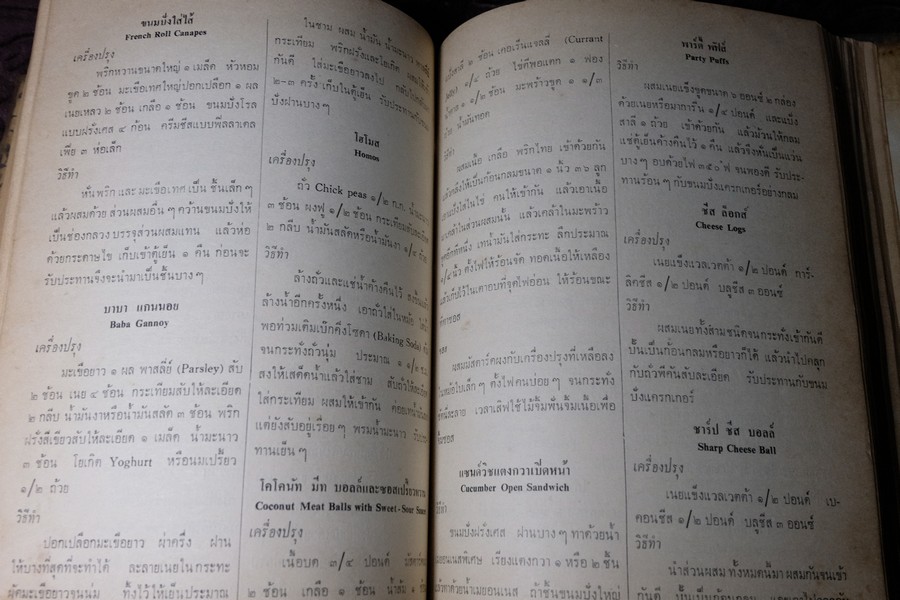 ขนมปังใส่ไส้
French Roll Canapes
เครื่องปรุง
พริกหวานขนาดใหญ่ ๑ เมล็ด หัวหอม
ขูด ๒ ช้อน มะเขือเทศใหญ่ปอกเปลือก ๑ ผล
เนยเหลว ๒ ช้อน เกลือ ๑ ช้อน ขนมปังโรล
แบบฝรั่งเศส ๔ ก้อน ครีมชีสแบบพิลลาเดล
เพีย ๓ ห่อเล็ก
วิธีทำ
หั่นพริก และ มะเขือเทศ เป็น ชิ้นเล็ก ๆ
แล้วผสมด้วย ส่วนผสมอื่น ๆ คว้านขนมปังให้
เป็นช่องกลวง บรรจุส่วนผสมแทน แล้วห่อ
ด้วยกระดาษไข เก็บเข้าตู้เย็น ๑ คืน ก่อนจะ
รับประทานจึงจะนำมาเป็นชิ้นบาง ๆ
บาบา แกนนอย
Baba Gannoy
เครื่องปรุง
มะเขือยาว ๑ ผล พาสลี่ย์ (Parsley) สับ
๒ ช้อน เนย ๔ ช้อน กระเทียมสับให้ละเอียด
๒ กลีบ น้ำมันงาหรือน้ำมันสลัด ๓ ช้อน พริก
ฝรั่งสีเขียวสับให้ละเอียด ๑ เมล็ด น้ำมะนาว
๓ ช้อน โยเกิต Yoghurt หรือนมเปรี้ยว
๑/๒ ถ้วย
วิธีทำ
ปอกเปลือกมะเขือยาว ผ่าครึ่ง ฝาน
ให้บางที่สุดที่จะทำได้ ละลายเนยในกระทะ
ผัดมะเขือยาวจนนุ่ม ทิ้งไว้ให้เย็นประมาณ
ในชาม ผสม น้ำมัน น้ำมะนาว
กระเทียม พริกฝรั่งและโยเกิต
กันดี ใส่มะเขือยาวลงไป
๒-๓ ครั้ง เก็บในตู้เย็น รับประทาน
ปังฝานบาง ๆ
โฮโมส
Homos
เครื่องปรุง
ถั่ว Chick peas ๑/๒ ก.ก.
๓ ช้อน ผงฟู ๑/๒ ช้อน กระเทียม
๒ กลีบ น้ำมันสลัดหรือน้ำมันงา ๑/๔ ถ้วย
วิธีทำ
ล้างถั่วและแช่น้ำค้างคืนไว้
ล้างน้ำอีกครั้งหนึ่ง เอาถั่วใส่ในหม้อ
พอท่วมเติมเบ๊กกิ้งโซดา (Baking Soda)
จนกระทั่งถั่วนุ่ม ประมาณ ๑ ๑/๒
ลงให้เสด็ดน้ำแล้วใส่ชาม สับถั่วให้
ใส่กระเทียม ผสมให้เข้ากัน
แต่ยังสับอยู่เรื่อย ๆ พรมน้ำมะนาว
ทานเย็น ๆ
โคโคนัท มีท บอลล์และซอสเปรี้ยวหวาน
Coconut Meat Balls with Sweet-Sour Sauce
เครื่องปรุง
เนื้อบด ๓/๔ ปอนด์
๒ ช้อน เกลือ ๑ ช้อน น้ำส้ม
๒ ช้อน เคยเร็นเจลลี่ (Currant
๑/๔ ถ้วย ไข่ตีพอแตก ๑ ฟอง
๑ ๑/๒ ช้อน มะพร้าวขูด ๑ ๑/๓
น้ำมันทอด
ผสมเนื้อ เกลือ พริกไทย เข้าด้วยกัน
ให้เป็นก้อนกลมขนาด ๑ นิ้ว ๓๖ ลูก
ใส่ไข่ คนให้เข้ากัน แล้วเอาเนื้อ
ในส่วนผสมนั้น แล้วเคล้าในมะพร้าว
อีกทีหนึ่ง เทน้ำมันใส่กระทะ ลึกประมาณ
นิ้ว ตั้งไฟให้ร้อนจัด ทอดเนื้อให้เหลือง
แล้วเก็บไว้ในเตาอบที่จุดไฟอ่อน ให้ร้อนขณะ
ผสมมัสตาร์ดผงกับเครื่องปรุงที่เหลือลง
ในหม้อใบเล็ก ๆ ตั้งไฟคนบ่อย ๆ จนกระทั่ง
ละลาย เวลาเสิฟใช้ไม้จิ้มฟันจิ้มเนื้อเพื่อ
แซนด์วิชแตงกวาเปิดหน้า
Cucumber Open Sandwich
วิธีทำ
ขนมปังฝรั่งเศส ฝานบาง ๆ ทาด้วยน้ำ
พิเศษ เรียงแตงกวา ๑ หรือ ๒ ชิ้น
แล้วทาด้วยน้ำมายองเนส ถ้าชิ้นขนมปังใหญ่
พาร์ตี้ พัฟส์
Party Puffs
วิธีทำ
ผสมเนยแข็งขูดขนาด ๖ ออนซ์ ๒ กล่อง
ด้วยเนยหรือมาการีน ๑/๔ ปอนด์ และแป้ง
สาลี ๑ ถ้วย เข้าด้วยกัน แล้วม้วนให้กลม
แช่ตู้เย็นค้างคืนไว้ ๑ คืน แล้วจึงหั่นเป็นแว่น
บาง ๆ อบด้วยไฟ ๓๕๐° ฟ จนพองดี รับประ-
ทานร้อน ๆ กับขนมปังแครกเกอร์อย่างกลม
ชีส ล็อกส์
Cheese Logs
เครื่องปรุง
เนยแข็งแวลเวตต้า ๑/๒ ปอนด์ การ์-
ลิคชีส ๑/๒ ปอนด์ บลูชีส ๓ ออนซ์
วิธีทำ
ผสมเนยทั้งสามชนิดจนกระทั่งเข้ากันดี
ปั้นเป็นก้อนกลมหรือยาวก็ได้ แล้วนำไปคลุก
กับถั่วพีคันสับละเอียด รับประทานกับขนม
ปังแครกเกอร์
ชาร์ป ชีส บอลล์
Sharp Cheese Ball
เครื่องปรุง
เนยแข็งแวลเวตต้า ๑/๒ ปอนด์ เบ-
คอนชีส ๑/๒ ปอนด์ บลูชีส ๓ ออนซ์
วิธีทำ
นำส่วนผสม ทั้งหมดนี้มา ผสมกันจนเข้า